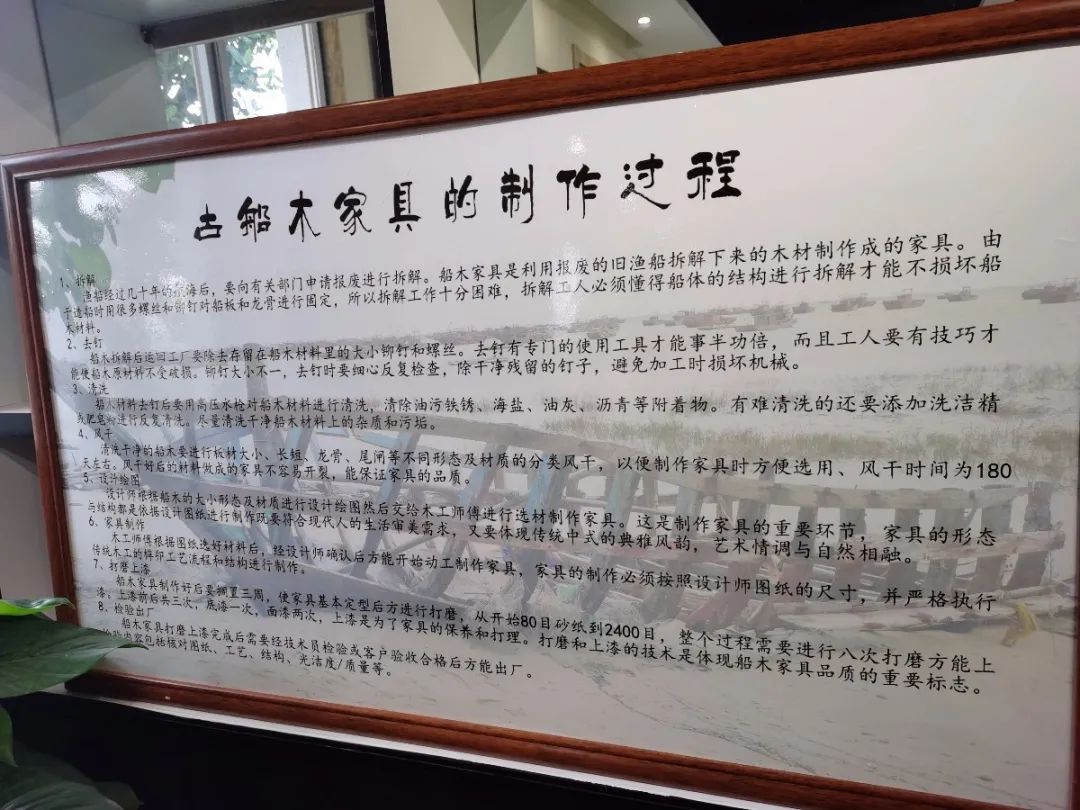 古船木家具的制作过程
1、拆解
渔船经过几十年的航海后，要向有关部门申请报废进行拆解。船木家具是利用报废的旧渔船拆解下来的木材制作成的家具。由
于造船时用很多螺丝和铆钉对船板和龙骨进行固定，所以拆解工作十分困难，拆解工人必须懂得船体的结构进行拆解才能不损坏船
木材料。
2、去钉
船木拆解后运回工厂要除去存留在船木材料里的大小铆钉和螺丝。去钉有专门的使用工具才能事半功倍，而且工人要有技巧才
能使船木原材料不受破损。铆钉大小不一，去钉时要细心反复检查，除干净残留的钉子，避免加工时损坏机械。
3、清洗
船木材料去钉后要用高压水枪对船木材料进行清洗，清除油污铁锈、海盐、油灰、沥青等附着物。有难清洗的还要添加洗洁精
或肥皂粉进行反复清洗。尽量清洗干净船木材料上的杂质和污垢。
4、风干
清洗干净的船木要进行板材大小、长短、龙骨、尾闸等不同形态及材质的分类风干，以便制作家具时方便选用、风干时间为180
天左右。风干好后的材料做成的家具不容易开裂，能保证家具的品质。
5、设计绘图
设计师根据船木的大小形态及材质进行设计绘图然后交给木工师傅进行选材制作家具。这是制作家具的重要环节，家具的形态
与结构都是依据设计图纸进行制作既要符合现代人的生活审美需求，又要体现传统中式的典雅风韵，艺术情调与自然相融。
6、家具制作
木工师傅根据图纸选好材料后，经设计师确认后方能开始动工制作家具，家具的制作必须按照设计师图纸的尺寸，并严格执行
传统木工的榫卯工艺流程和结构进行制作。
7、打磨上漆
船木家具制作好后要搁置三周，使家具基本定型后方进行打磨，从开始80目砂纸到2400目，整个过程需要进行八次打磨方能上
漆，上漆前后共三次，底漆一次，面漆两次，上漆是为了家具的保养和打理。打磨和上漆的技术是体现船木家具品质的重要标志。
8、检验出厂
船木家具打磨上漆完成后需要经技术员检验或客户验收合格后方能出厂。
检验内容包括核对图纸、工艺、结构、光洁度/质量等。